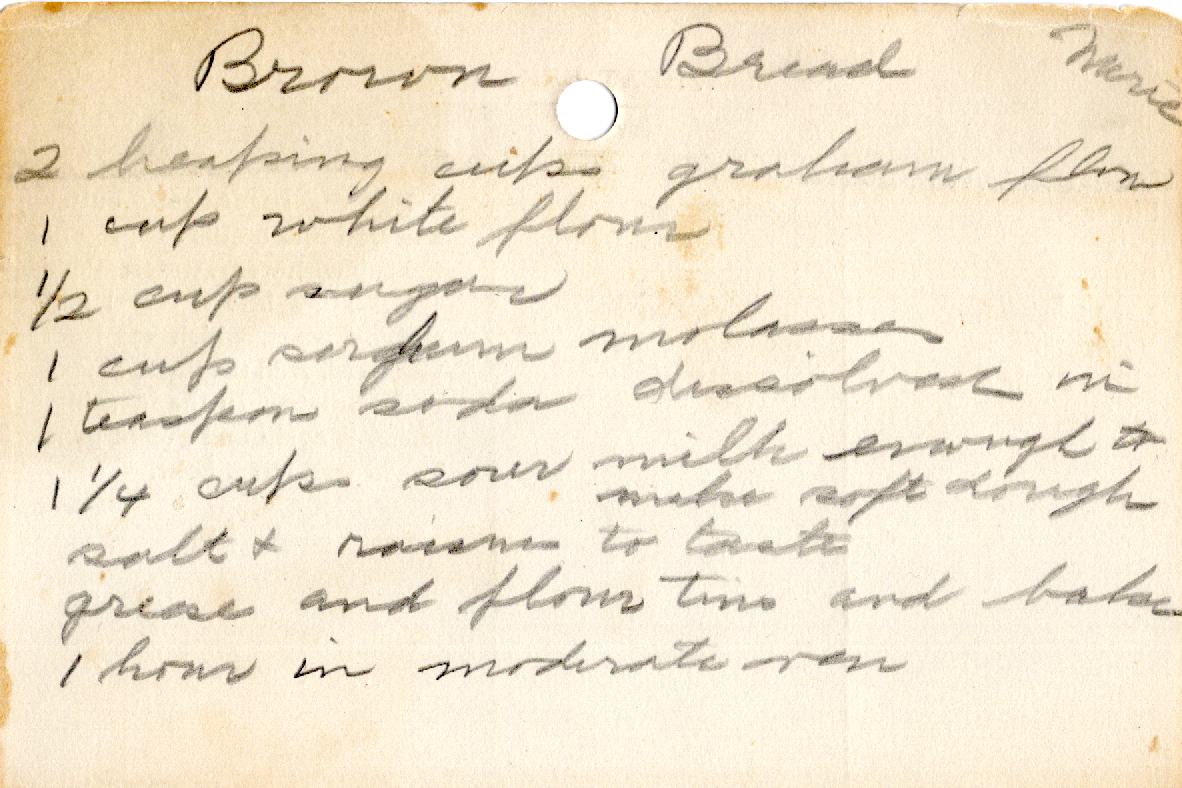 Brown Bread Marie
2 heaping cups graham flour
1 cup white flour
1/2 cup sugar
1 cup sorghum molasses
1 teaspoon soda dissolved in
1 1/4 cups sour milk enough to
make soft dough
salt + raisins to taste
grease and flour tins and bake
1 hour in moderate oven